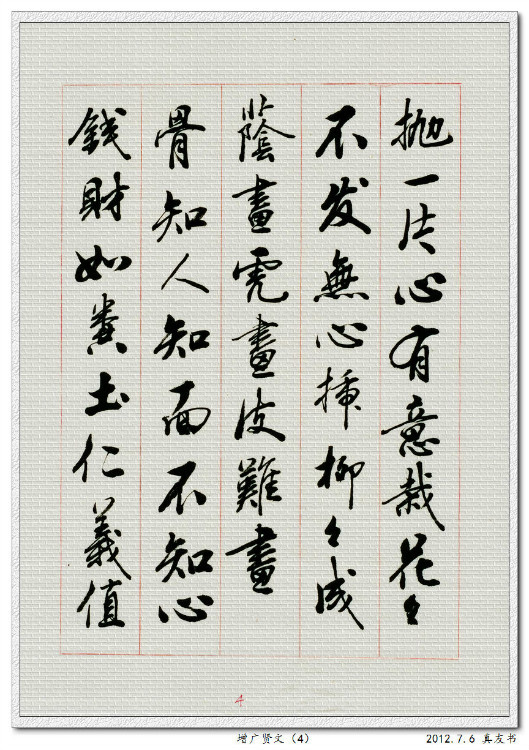 抛一片心有意栽花々
不发無心插柳々成
蔭畫虎畫皮難畫
骨知人知面不知心
錢財如糞土仁義值
4
增广贤文（4）
2012.7.6 真友书